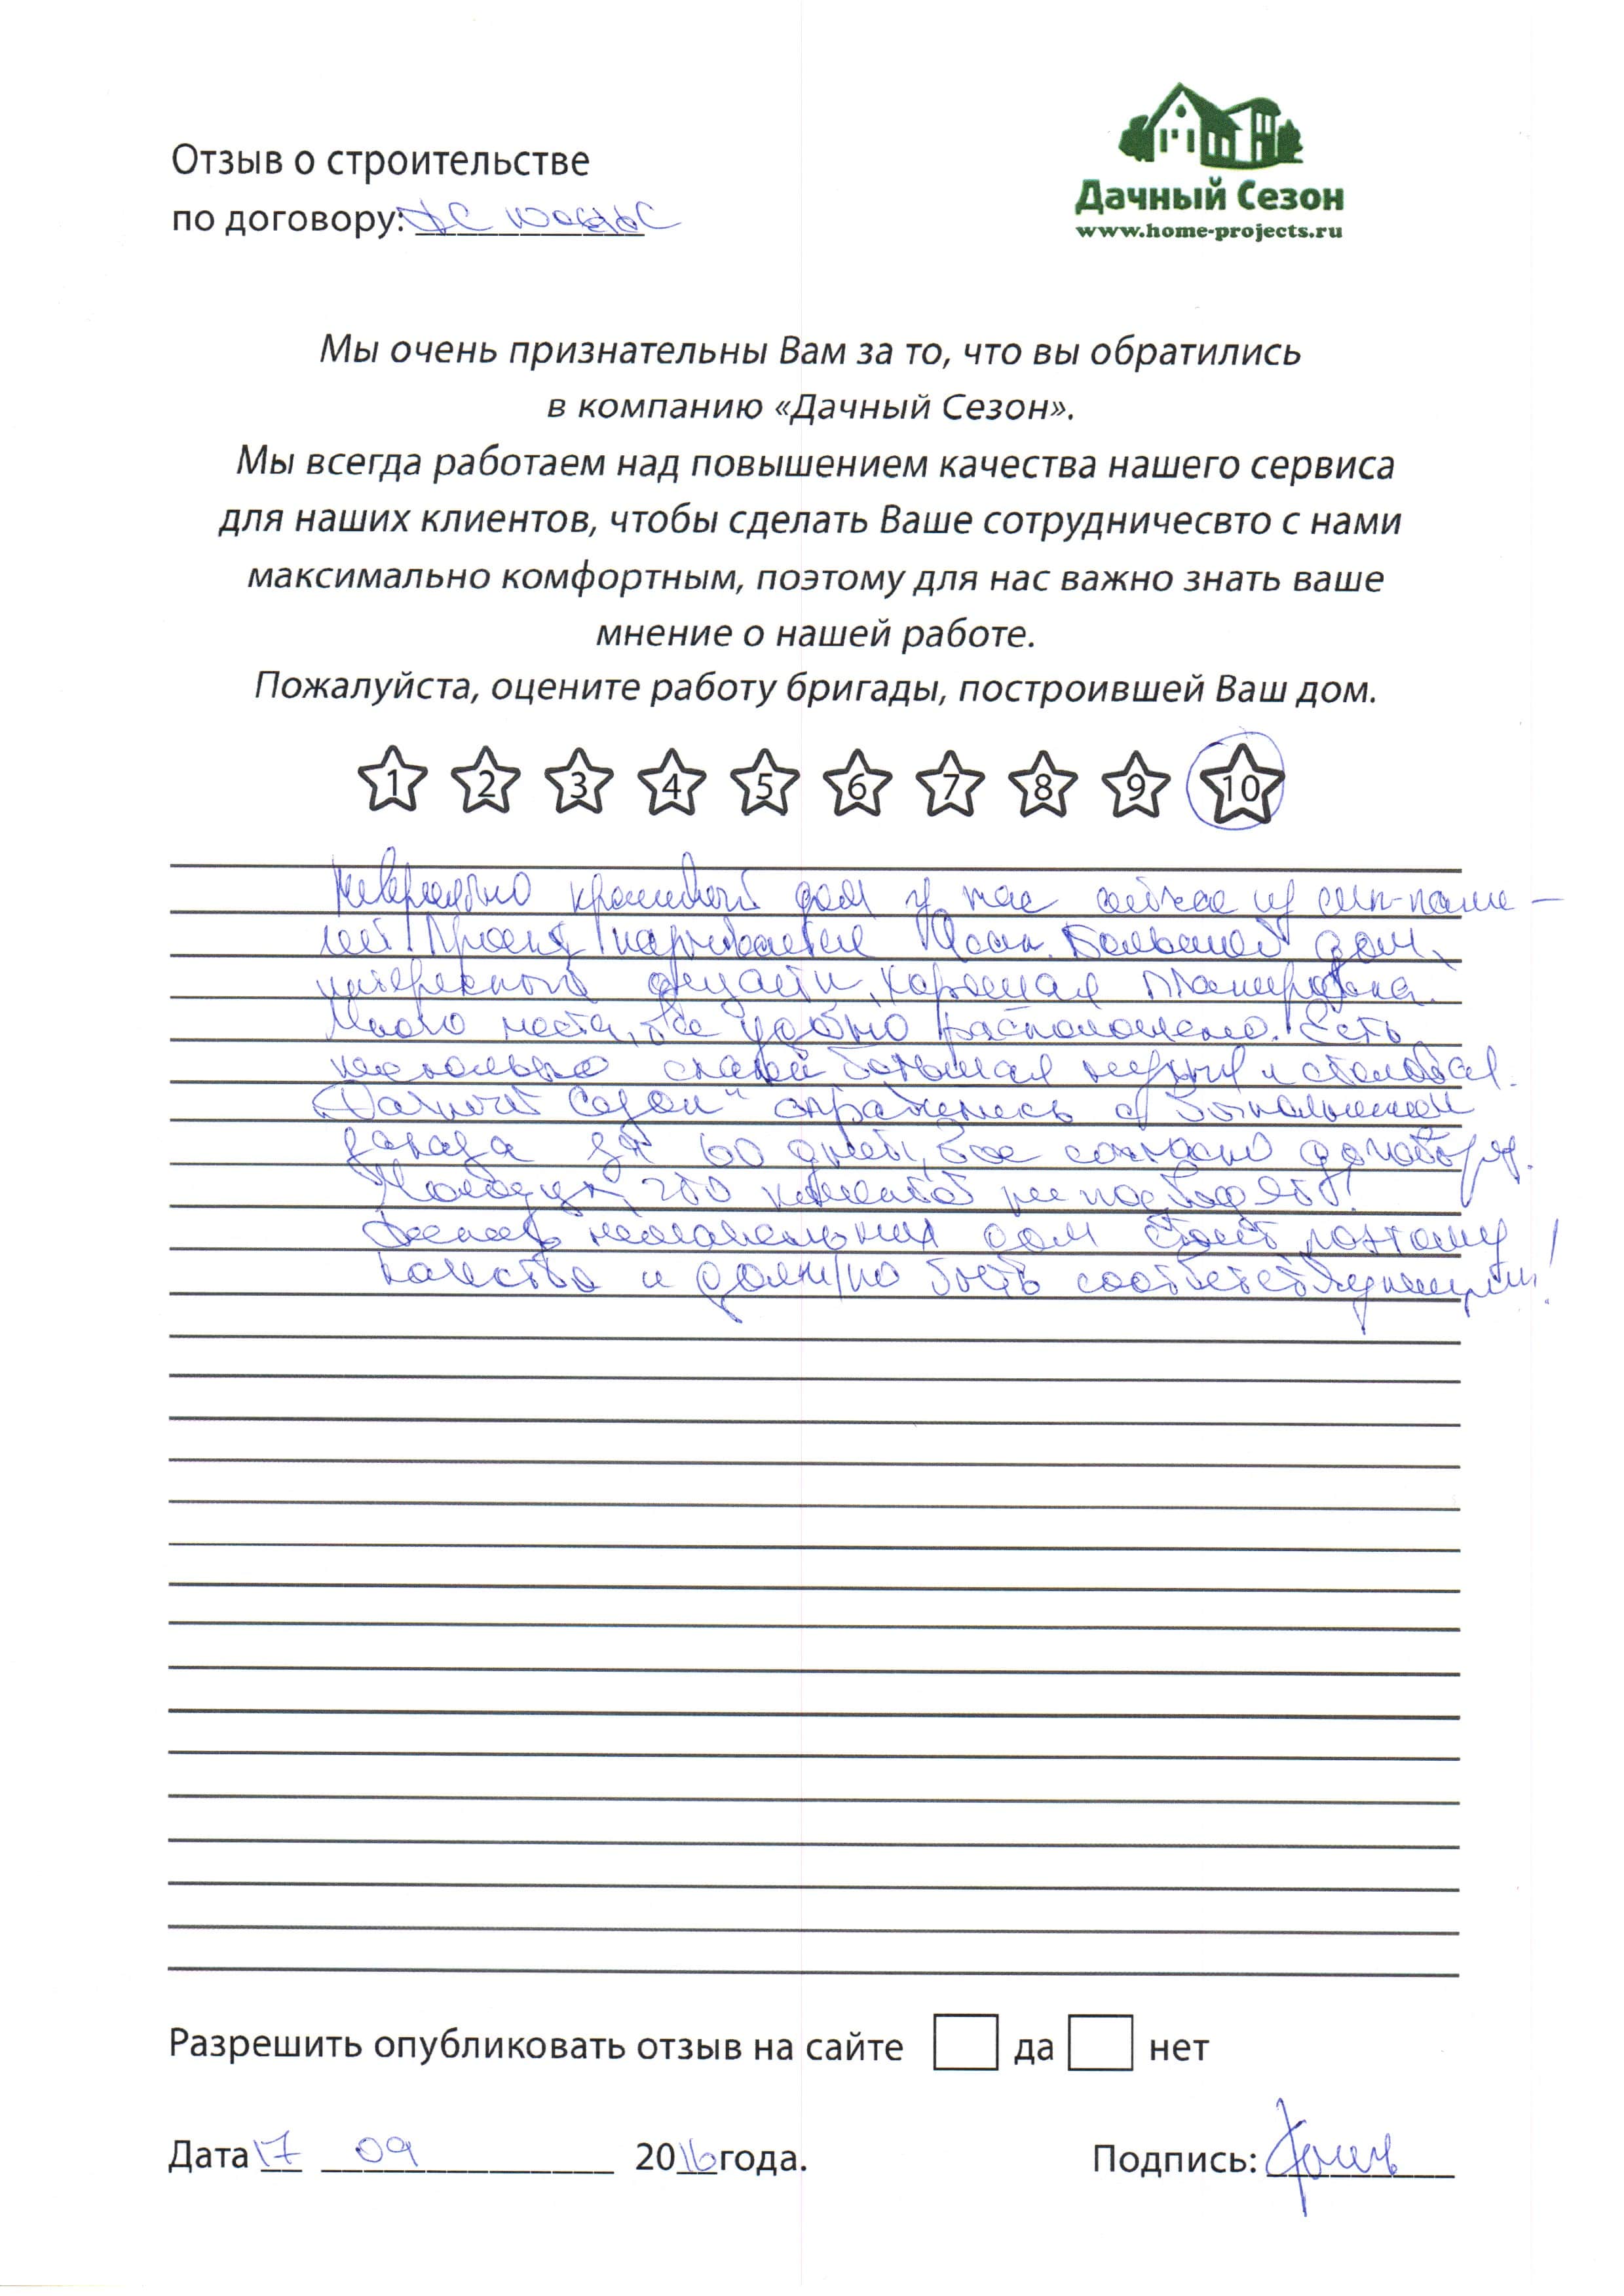 Отзыв о строительстве
по договору: ДС
Дачный Сезон
www.home-projects.ru
Мы очень признательны Вам за то, что вы обратились
в компанию «Дачный Сезон».
Мы всегда работаем над повышением качества нашего сервиса
для наших клиентов, чтобы сделать Ваше сотрудничесвто с нами
максимально комфортным, поэтому для нас важно знать ваше
мнение о нашей работе.
Пожалуйста, оцените работу бригады, построившей Ваш дом.
1 2 3 4 5 6 7 8 9 10
Невероятно красивый дом у нас сейчас из сип-пане-
лей! Проект называется Большой дом,
интересный дизайн, хорошая планировка.
Много места, все удобно расположено. Есть
несколько спален большая кухня и столовая.
"Дачный Сезон" справились с выполнением
заказа за 60 дней, все согласно договору.
Молодцы, что клиентов не подводят!
немаленьких дом стоит поэтому
качество и должно быть соответствующим!
Разрешить опубликовать отзыв на сайте да нет
Дата 17 09 2016 года. Подпись: